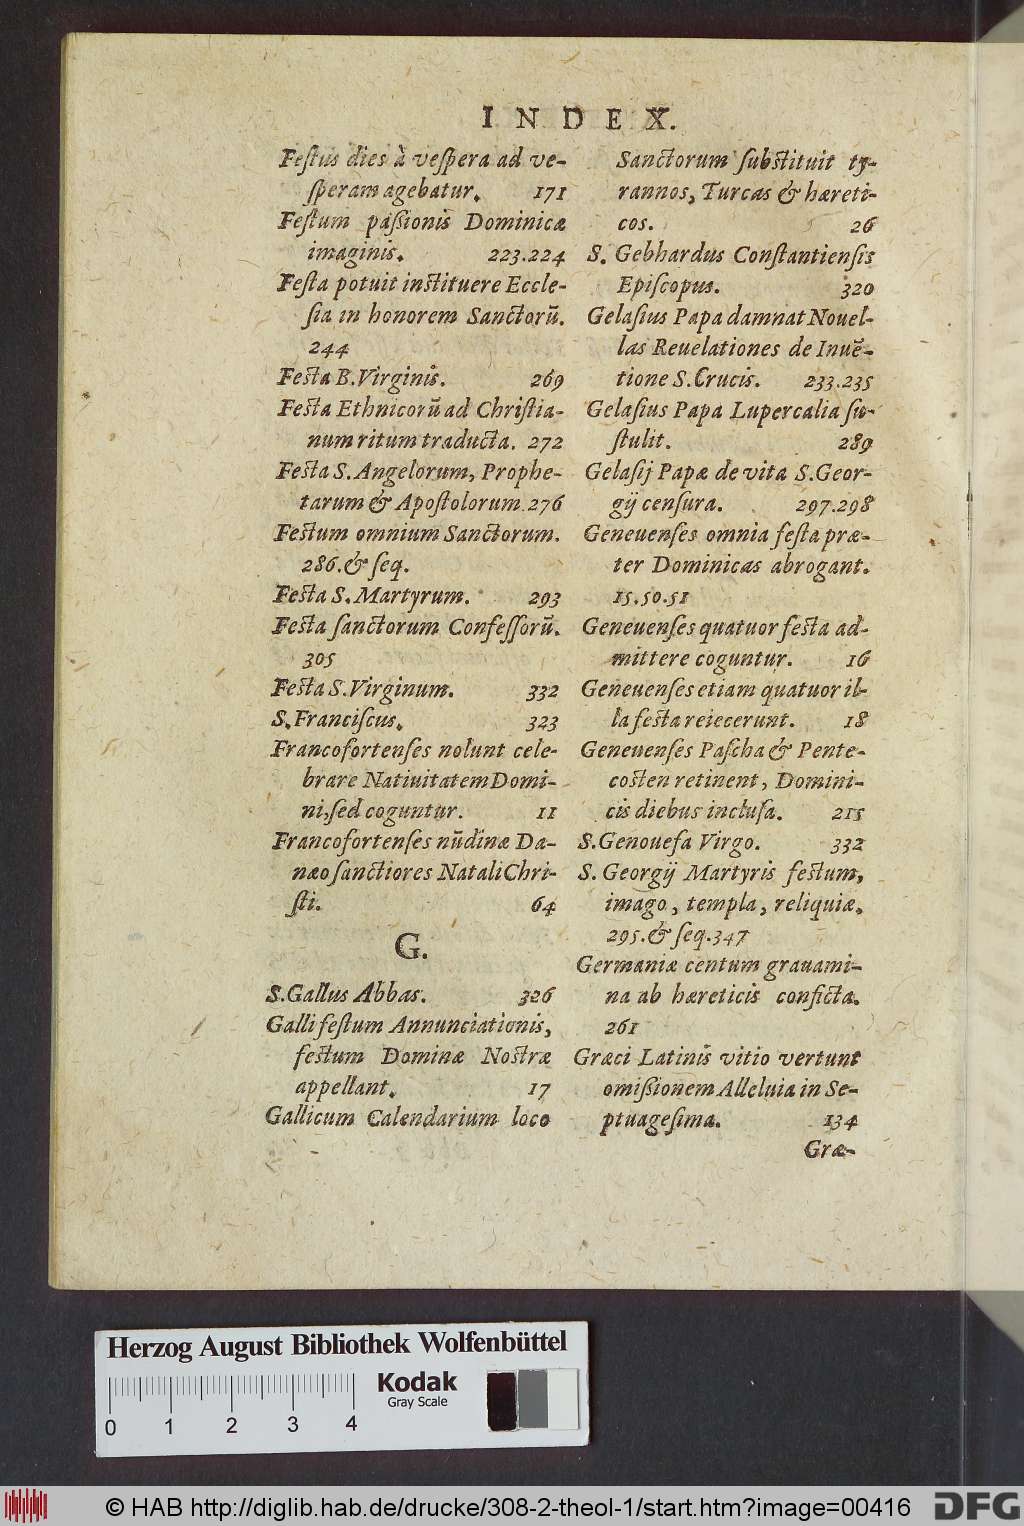 INDEX.
Feſtus dies à veſpera ad ve-
ſperam agebatur. 171
Feſtum paſsionis Dominicæ
imaginis. 223.224
Feſta potuit inſtituere Eccle-
ſia in honorem Sanctorū.
244
Feſta B.Virginis. 269
Feſta Ethnicorū ad Chriſtia-
num ritum traducta. 272
Feſta S.Angelorum, Prophe-
tarum & Apoſtolorum.276
Feſtum omnium Sanctorum.
286.& ſeq.
Feſta S.Martyrum. 293
Feſta ſanctorum Confeſſorū.
305
Feſta S.Virginum. 332
S.Franciſcus. 323
Francofortenſes nolunt cele-
brare Natiuitatem Domi-
ni,ſed coguntur. 11
Francofortenſes nūdinæ Da-
næo ſanctiores Natali Chri-
ſti. 64
G.
S.Gallus Abbas. 326
Galli feſtum Annunciationis,
feſtum Dominæ Noſtræ
appellant. 17
Gallicum Calendarium loco
Sanctorum ſubſtituit ty-
rannos, Turcas & hæreti-
cos. 26
S. Gebhardus Conſtantienſis
Epiſcopus. 320
Gelaſius Papa damnat Nouel-
las Reuelationes de Inuē-
tione S.Crucis. 233.235
Gelaſius Papa Lupercalia ſu-
ſtulit. 289
Gelaſij Papæ de vita S.Geor-
gij cenſura. 297.298
Geneuenſes omnia feſta præ-
ter Dominicas abrogant.
15.50.51
Geneuenſes quatuor feſta ad-
mittere coguntur. 16
Geneuenſes etiam quatuor il-
la feſta reiecerunt. 18
Geneuenſes Paſcha & Pente-
coſten retinent, Domini-
cis diebus incluſa. 215
S.Genoueſa Virgo. 332
S. Georgij Martyris feſtum,
imago, templa, reliquiæ.
295.& ſeq.347
Germaniæ centum grauami-
na ab hæreticis conficta.
261
Græci Latinis vitio vertunt
omiſsionem Alleluia in Se-
ptuageſima. 134
Græ-
Herzog August Bibliothek Wolfenbüttel
Kodak
Gray Scale
0 1 2 3 4
© HAB http://diglib.hab.de/drucke/308-2-theol-1/start.htm?image=00416
DFG